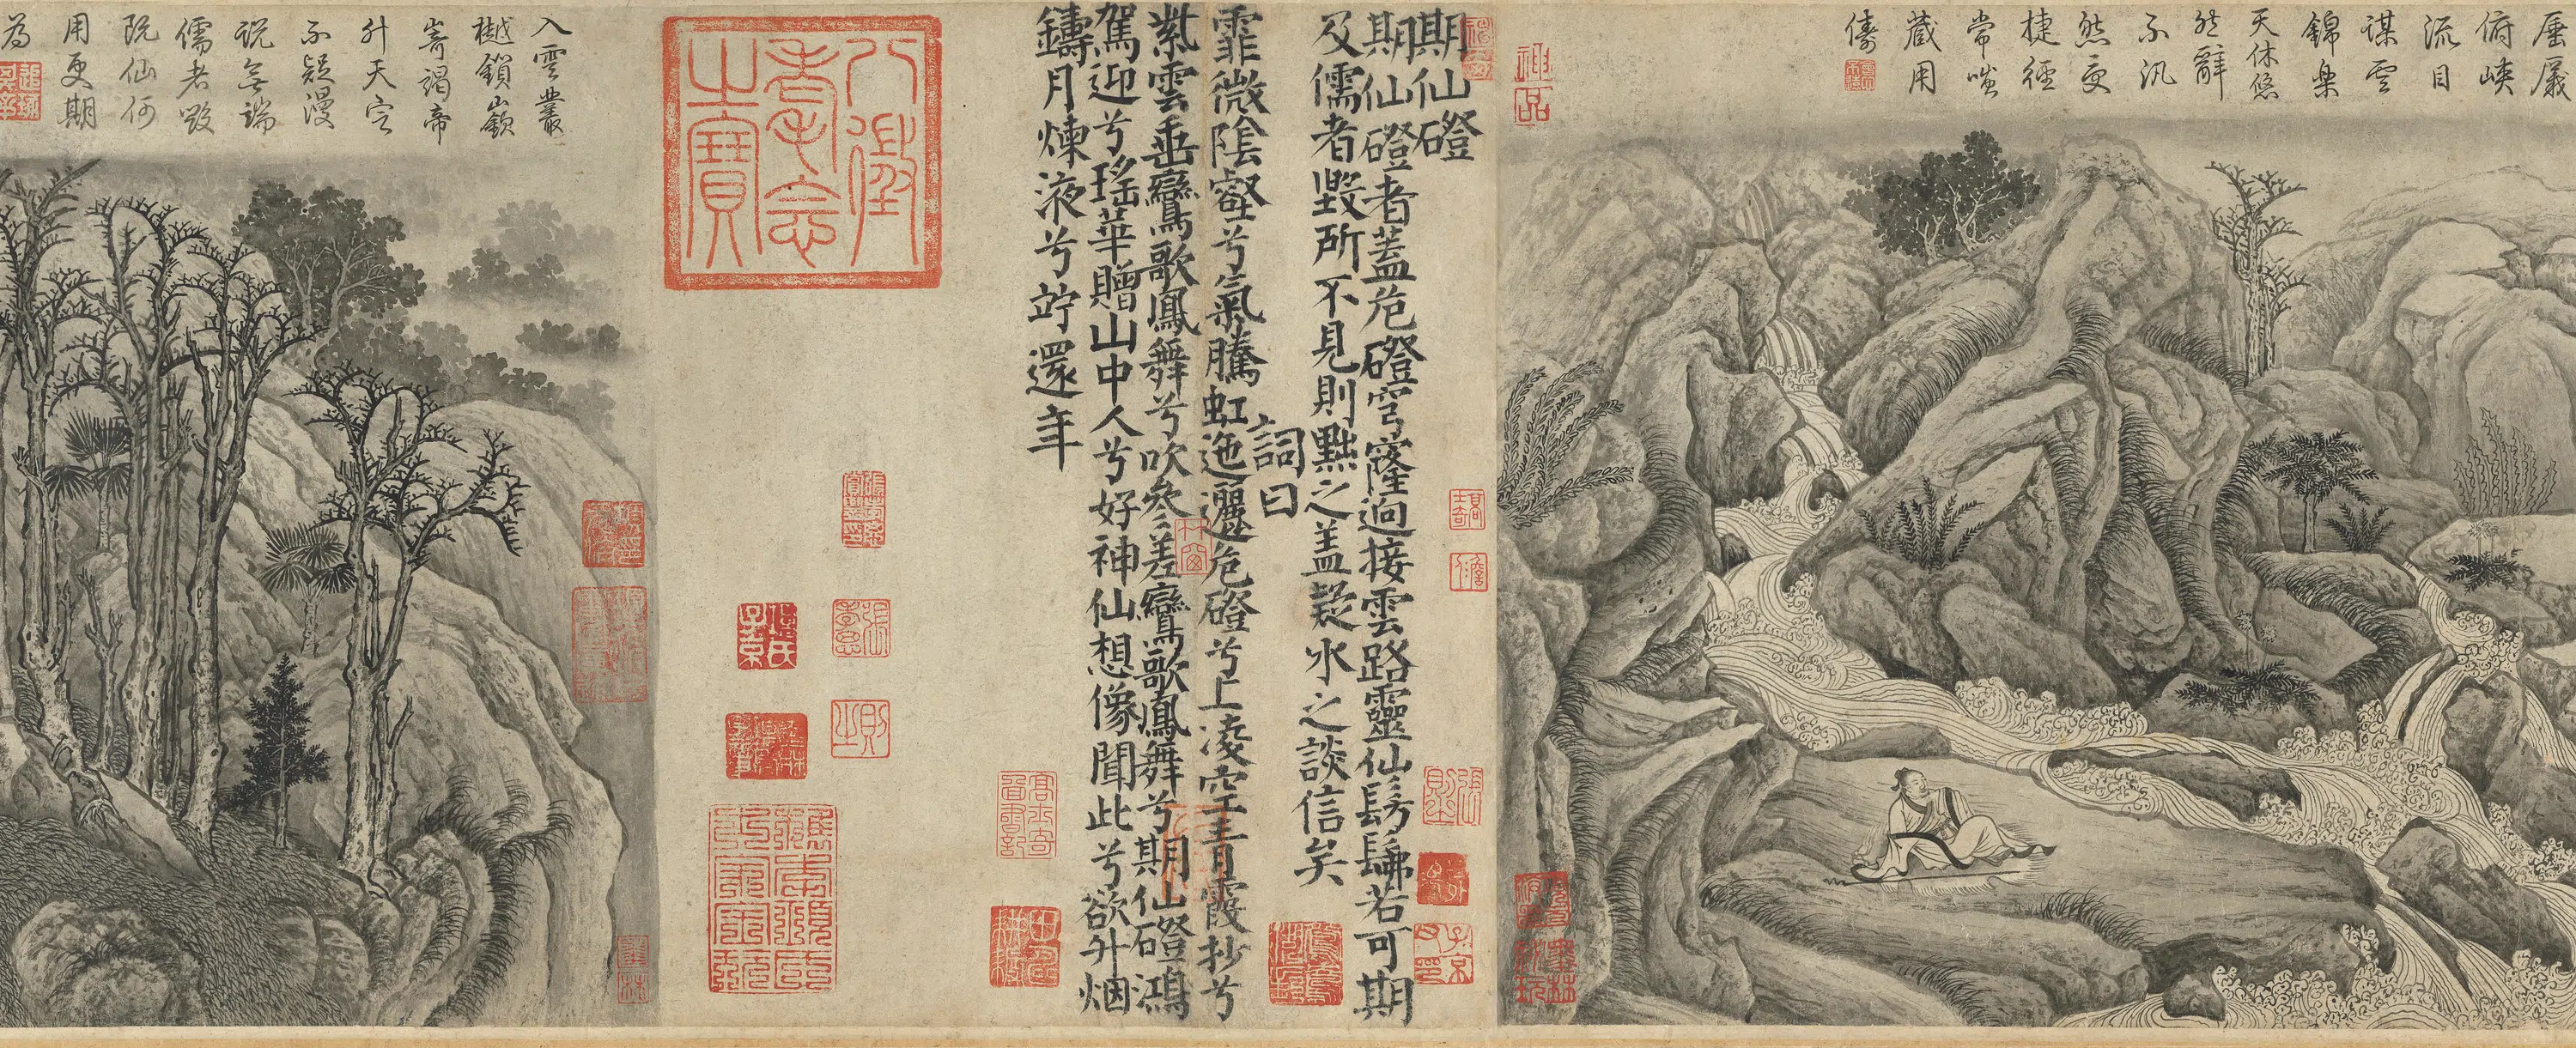 俯峽
流目
謀雲
錦樂
天休悠
然辭
不汎
然更
捷徑
常嗤
藏用
儔
期仙磴
期仙磴者蓋危磴穹窿迥接雲路靈仙髣髴若可期
及儒者毀所不見則黜之蓋疑氷之談信矣
詞曰
霏微陰壑兮氣騰虹迤邐危磴兮上凌空青霞杪兮
紫雲垂鸞歌鳳舞兮吹參差鸞歌鳳舞兮期仙磴鴻
駕迎兮瑤華贈山中人兮好神仙想像聞此兮欲升烟
鑄月煉液兮竚還年
八徵
耄念
之寶
入雲叢
樾鎖嶔
嵜謁帝
升天定
不疑漫
說無端
儒者毀
阮仙何
用更期
為